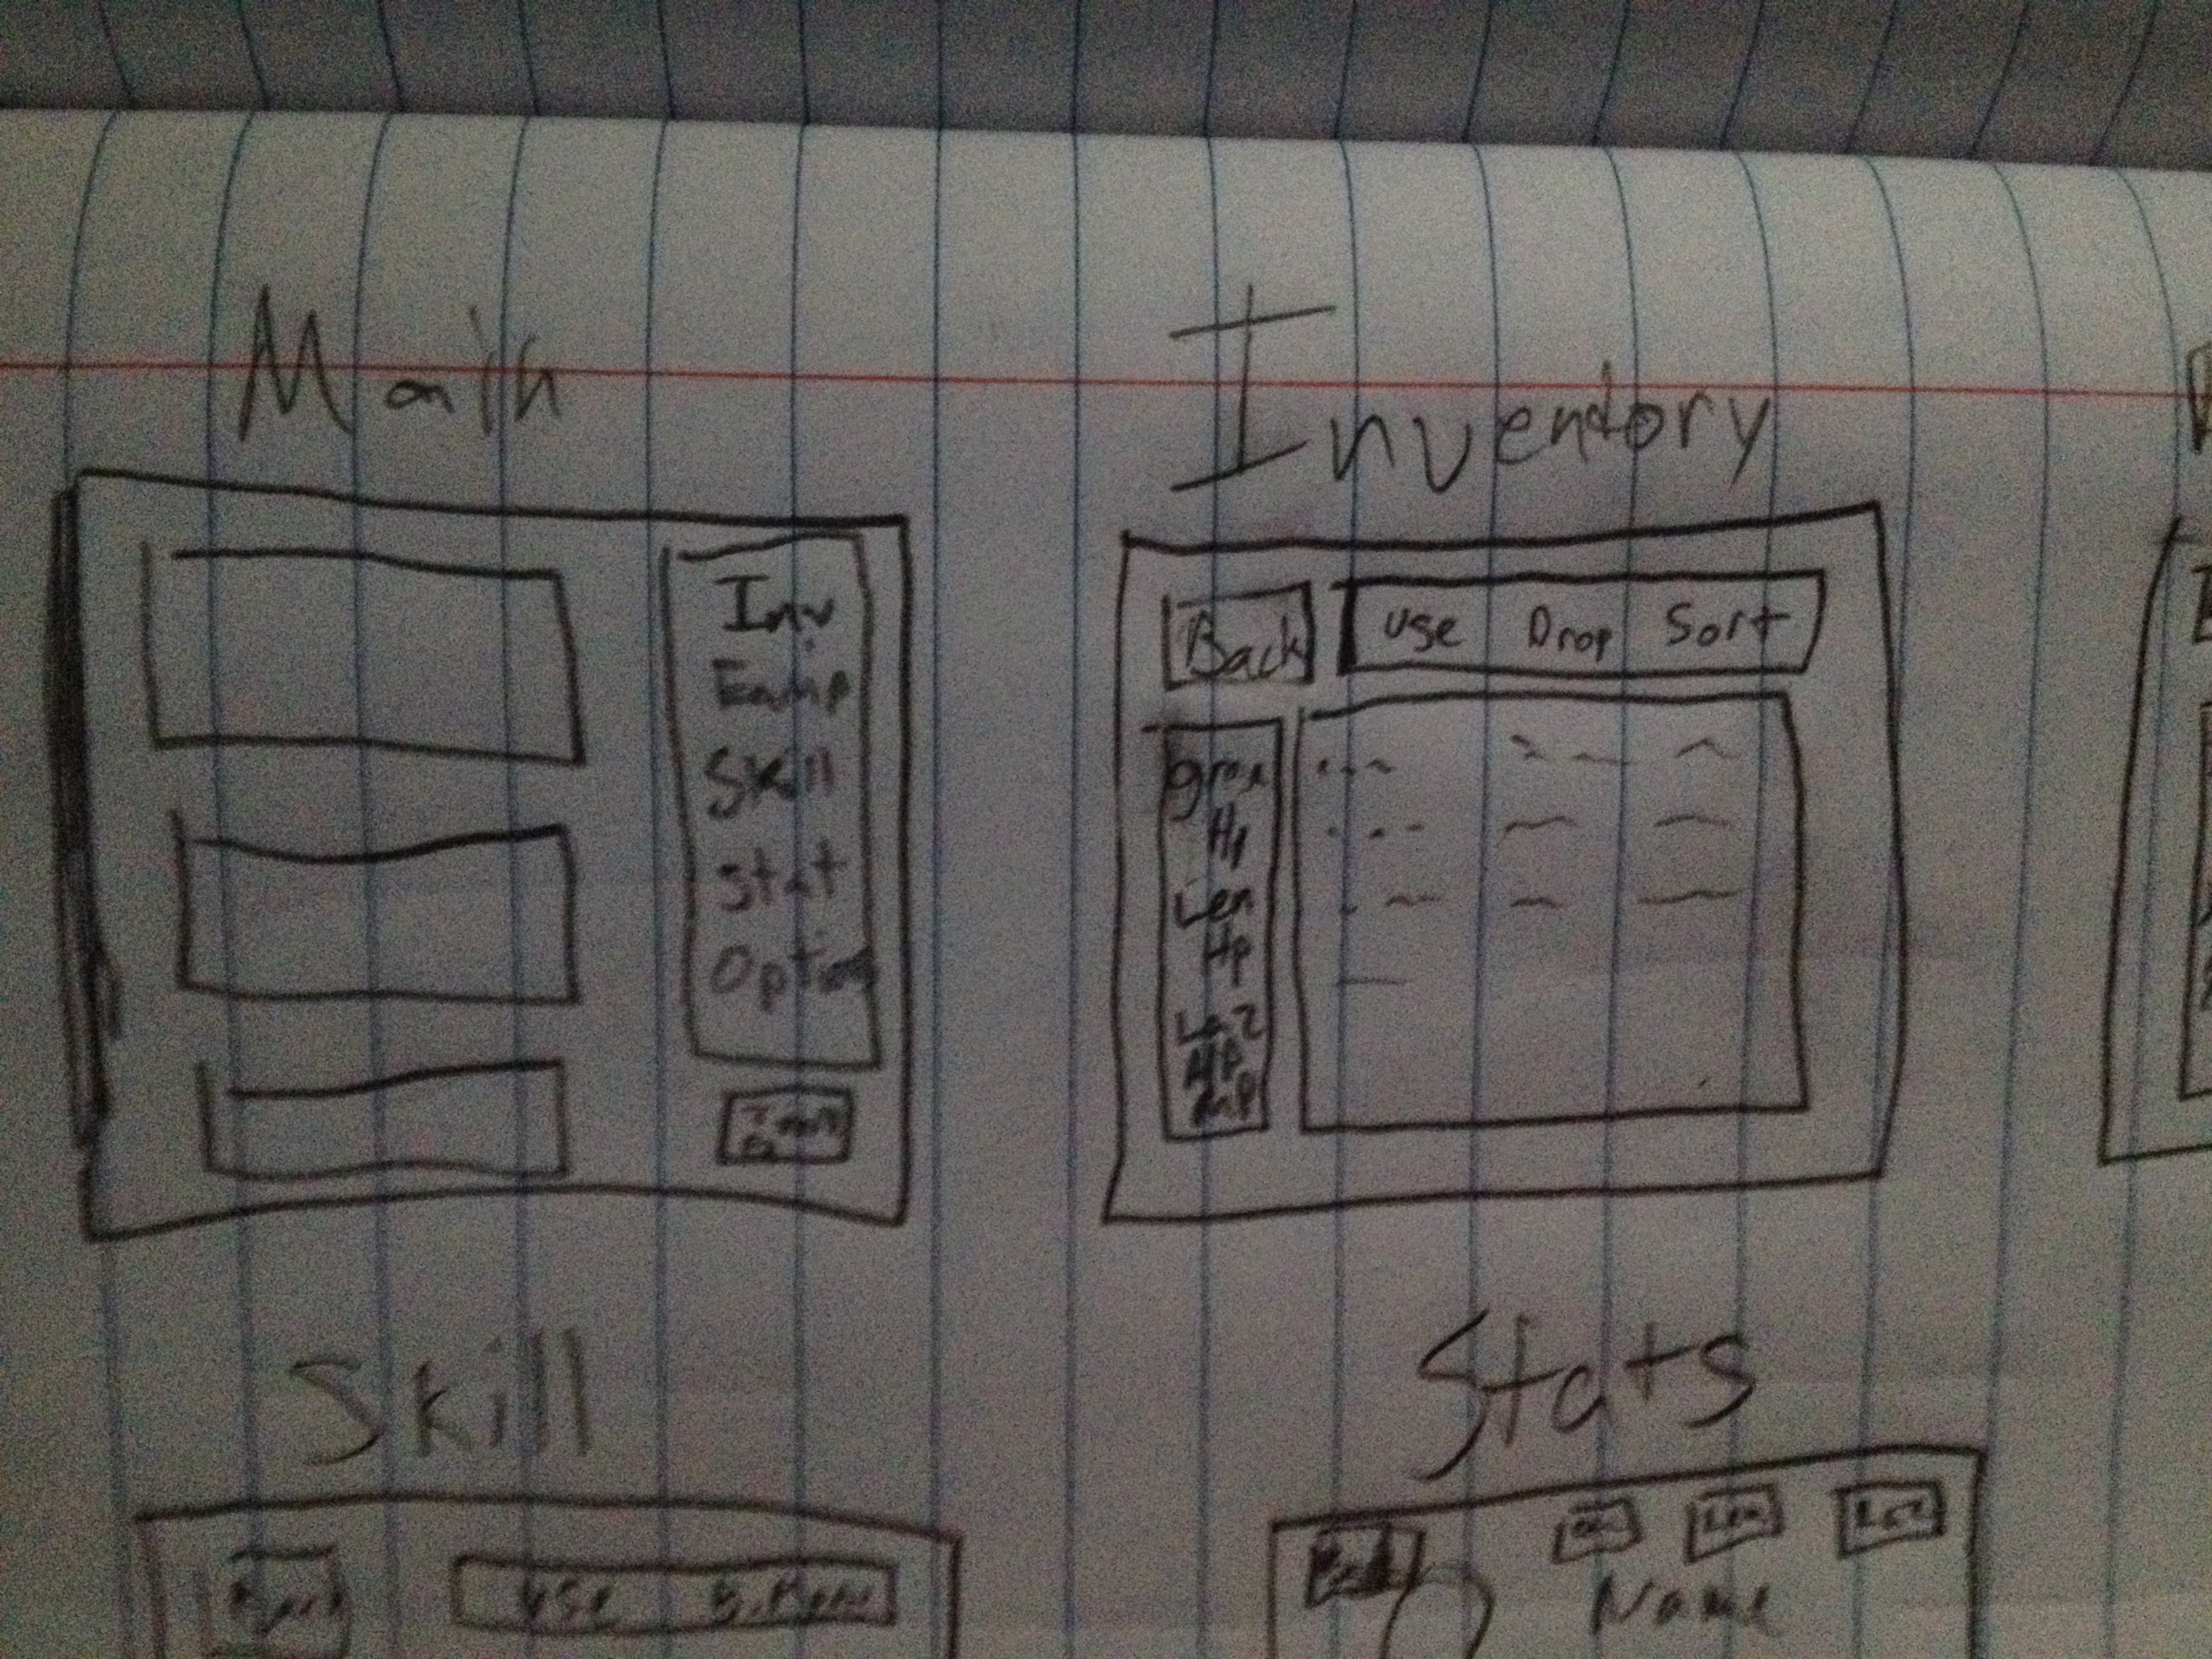 Main
Inv
Equip
Skill
Stat
Option
Inventory
Back
Use Drop Sort
Len
Hp
Skill
Back
Use
Stats
Back
Len
Name